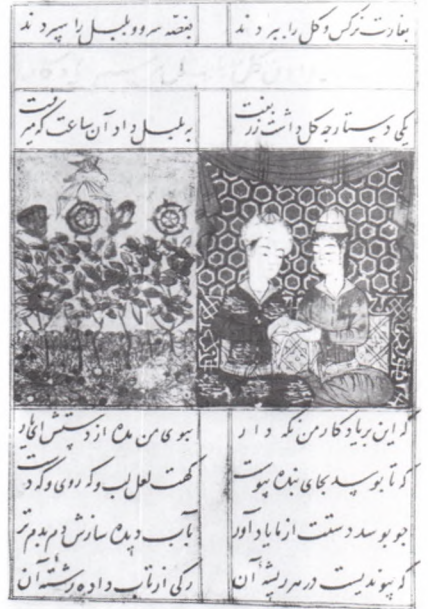 بغارت نرکس و کل را ببردند بغصّه سرو و بلبل را سپردند
یکی دستارچه کل داشت زربفت به بلبل داد آن ساعت که میرفت
که این بر یادکار من نکه دار ببوی من مده از دستش ای یار
که تا بوسد بجای بنده پیوست کهت لعل لب و که روی و که دست
جو بوسد دستت از ما یاد آور بآب دیده سازش دم بدم تر
که پیوندیست در هر ریشهٔ آن رکی از تاب داده رشتهٔ آن